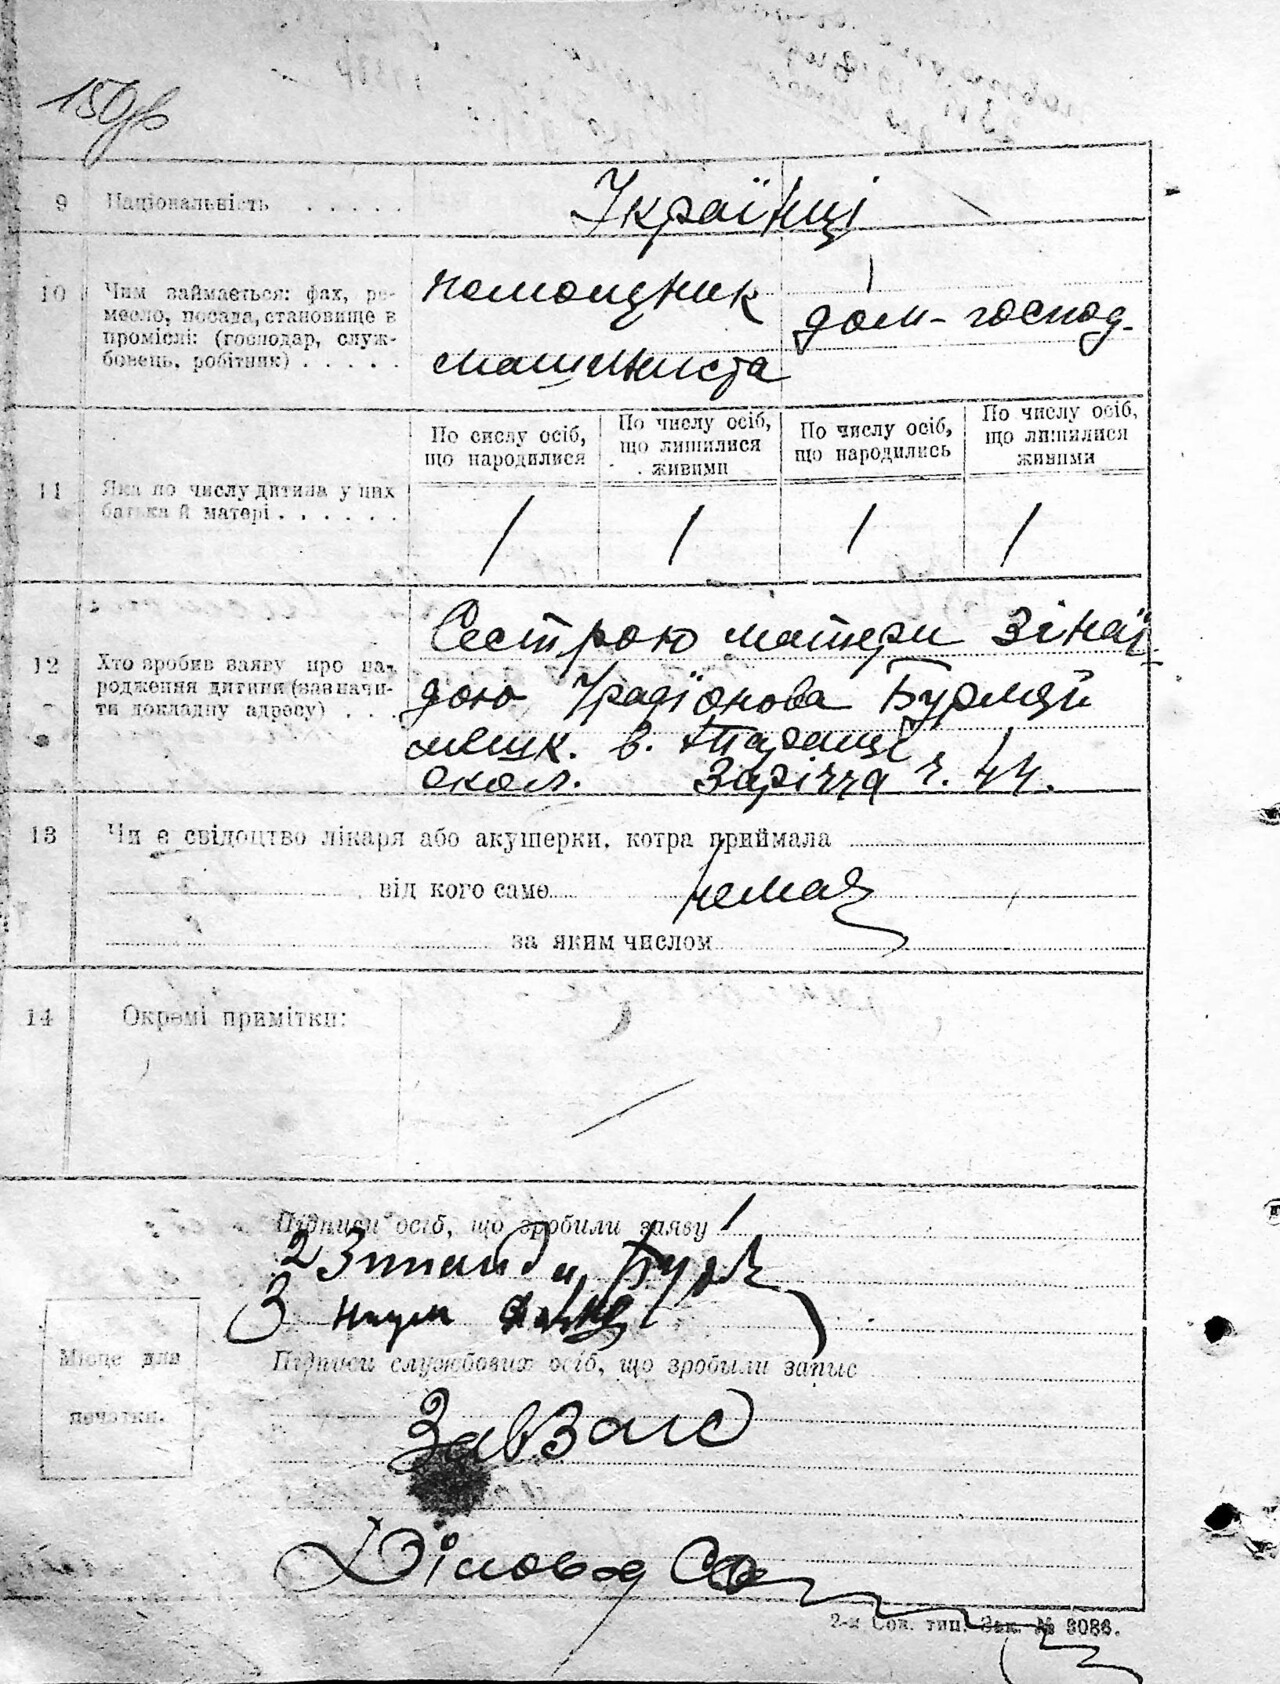 9 Національність . . . . .
Українці
10 Чим займається: фах, ре-
месло, посада, становище в
промислі: (господар, служ-
бовець, робітник) . . . . .
помощник
машиниста
дом-господ.
11 Яка по числу дитина у них
батька й матері . . . . . .
По сислу осіб,
що народилися
По числу осіб,
що лишилися
живими
По числу осіб,
що народились
По числу осіб,
що лишилися
живими
1 1 1 1
12 Хто зробив заяву про на-
родження дитини (зазначи-
ти докладну адресу) . . .
Сестрою матери Зінаї-
дою
мешк. в. Таращі
окол. Заріччя ч. 44.
13 Чи є свідоцтво лікаря або акушерки, котра приймала
від кого саме немає
за яким числом
14 Окремі примітки:
Підписи осіб, що зробили заяву
2
3 Наум
Місце для
печатки.
Підписи службових осіб, що зробыли запыс
ЗавЗагс
Діловод
2-я Сов. тип. Зак. № 3086.